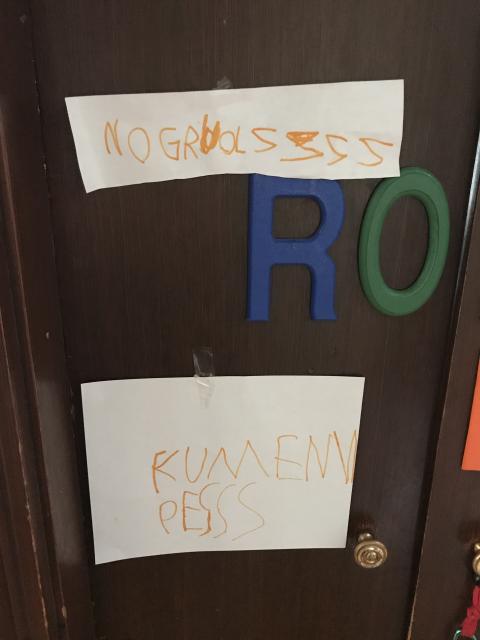 NO GRUOLS SSS
RO
KUM EN
PESSS